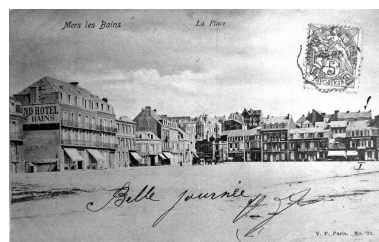 Mers les Bains
La Place
5
ND HOTEL
BAINS
Belle journée
V. P. Paris. No.